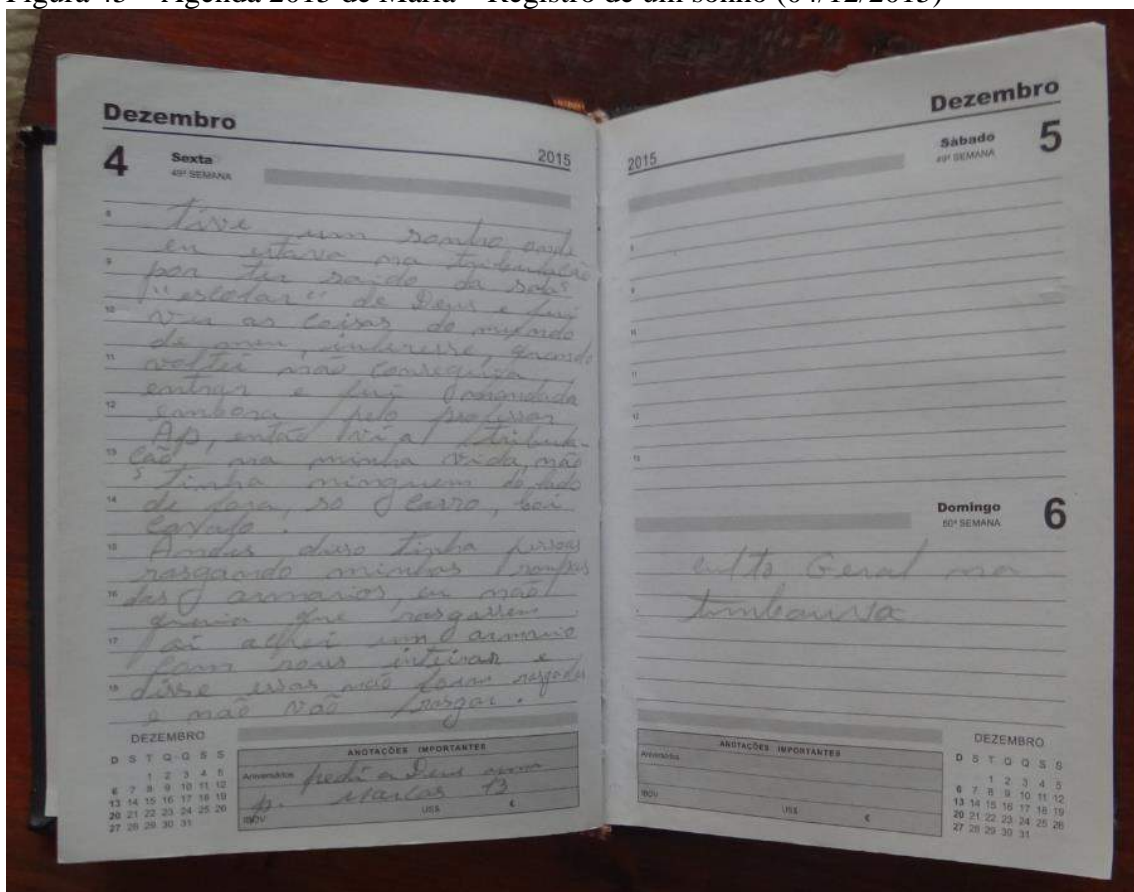 Figura 43 – Agenda 2015 de Maria – Registro de um sonho (04/12/2015)
Dezembro
4 Sexta 2015
49ª SEMANA
8 Tive um sonho onde
eu estava na tribulação
9 por ter saido da sala
"escolar" de Deus e fui
10 ver as coisas do mundo
de meu interesse, quando
11 voltei não conseguia
entrar e fui mandada
12 embora pelo professor
Ap, então vi a tribula-
13 ção na minha vida, não
tinha ninguem do lado
14 de fora, so carro, boi
cavalo.
15 Antes disso tinha pessoas
rasgando minhas roupas
16 dos armarios, eu não
queria que rasgassem
17 ai achei um armario
com inteiras e
18 disse essas não foram rasgadas
e não vão rasgar.
DEZEMBRO
D S T Q Q S S
1 2 3 4 5
6 7 8 9 10 11 12
13 14 15 16 17 18 19
20 21 22 23 24 25 26
27 28 29 30 31
ANOTAÇÕES IMPORTANTES
Aniversários pedi a Deus uma
p. Marcos 13
IBOV US$ €
Dezembro
2015 Sábado 5
49ª SEMANA
8
9
10
11
12
13
Domingo 6
50ª SEMANA
culto Geral na
timbauva
ANOTAÇÕES IMPORTANTES
Aniversários
IBOV US$ €
DEZEMBRO
D S T Q Q S S
1 2 3 4 5
6 7 8 9 10 11 12
13 14 15 16 17 18 19
20 21 22 23 24 25 26
27 28 29 30 31